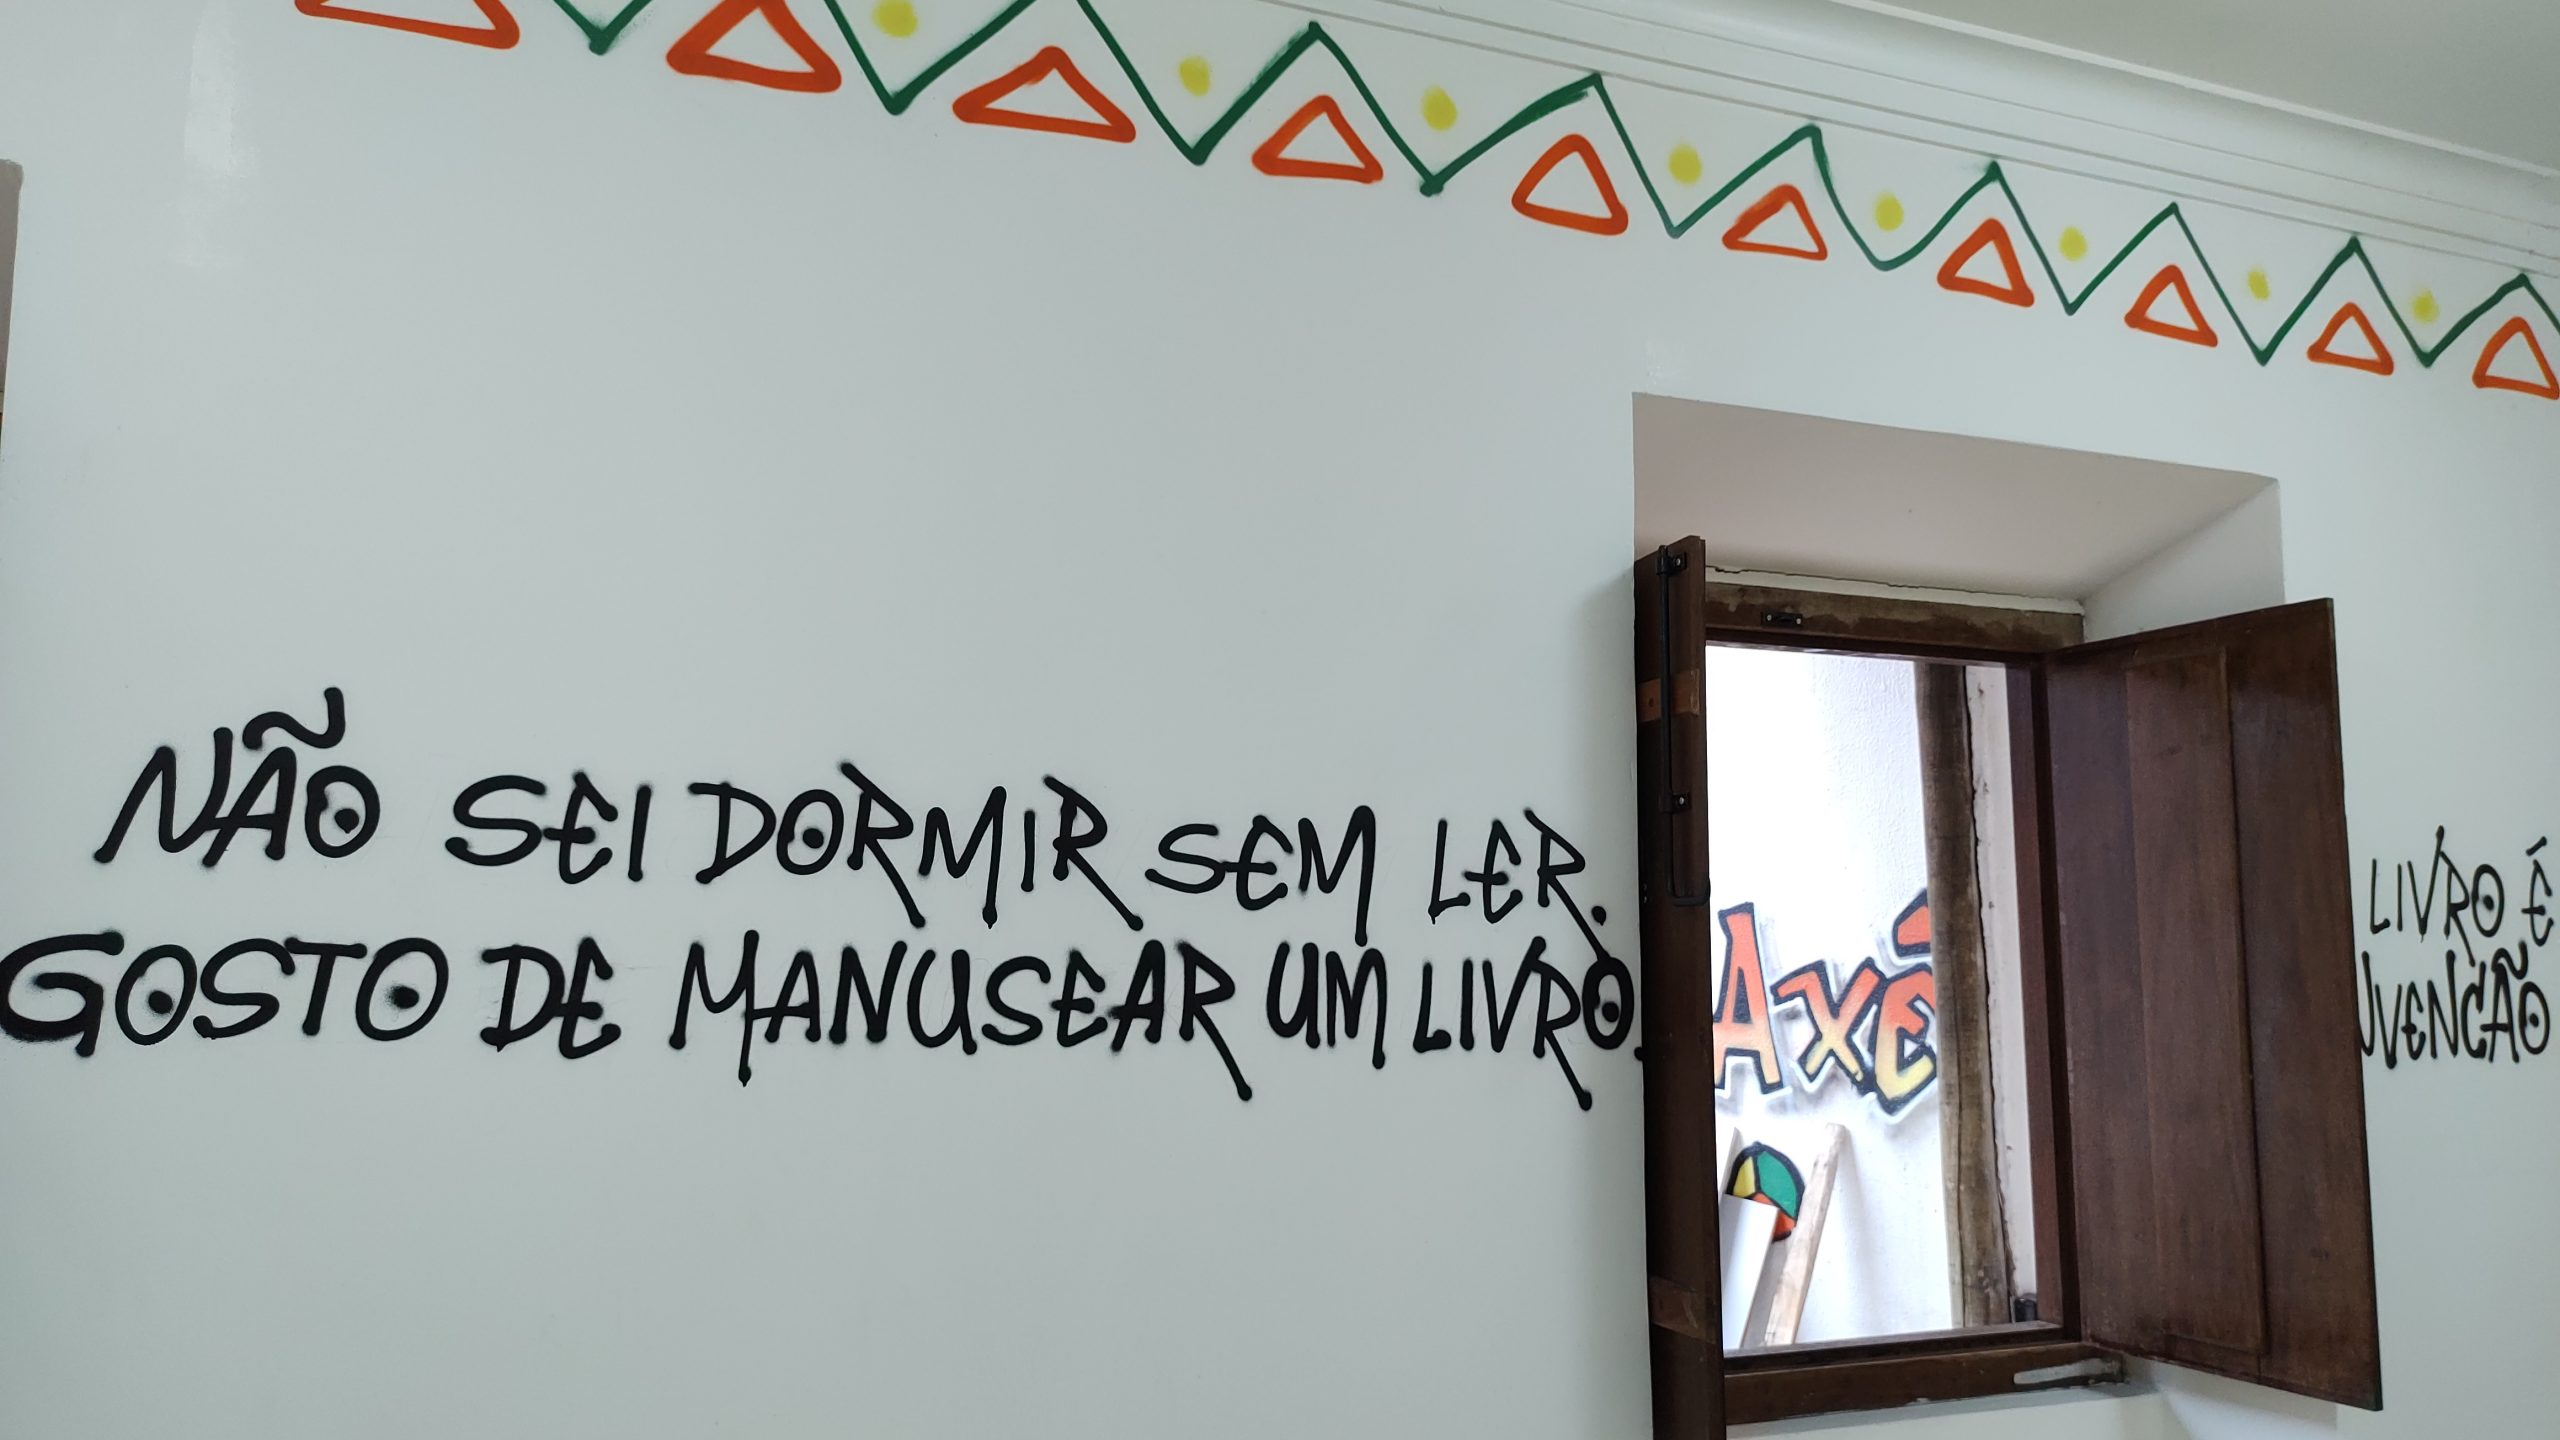 NÃO SEI DORMIR SEM LER.
GOSTO DE MANUSEAR UM LIVRO.
LIVRO É
Axé